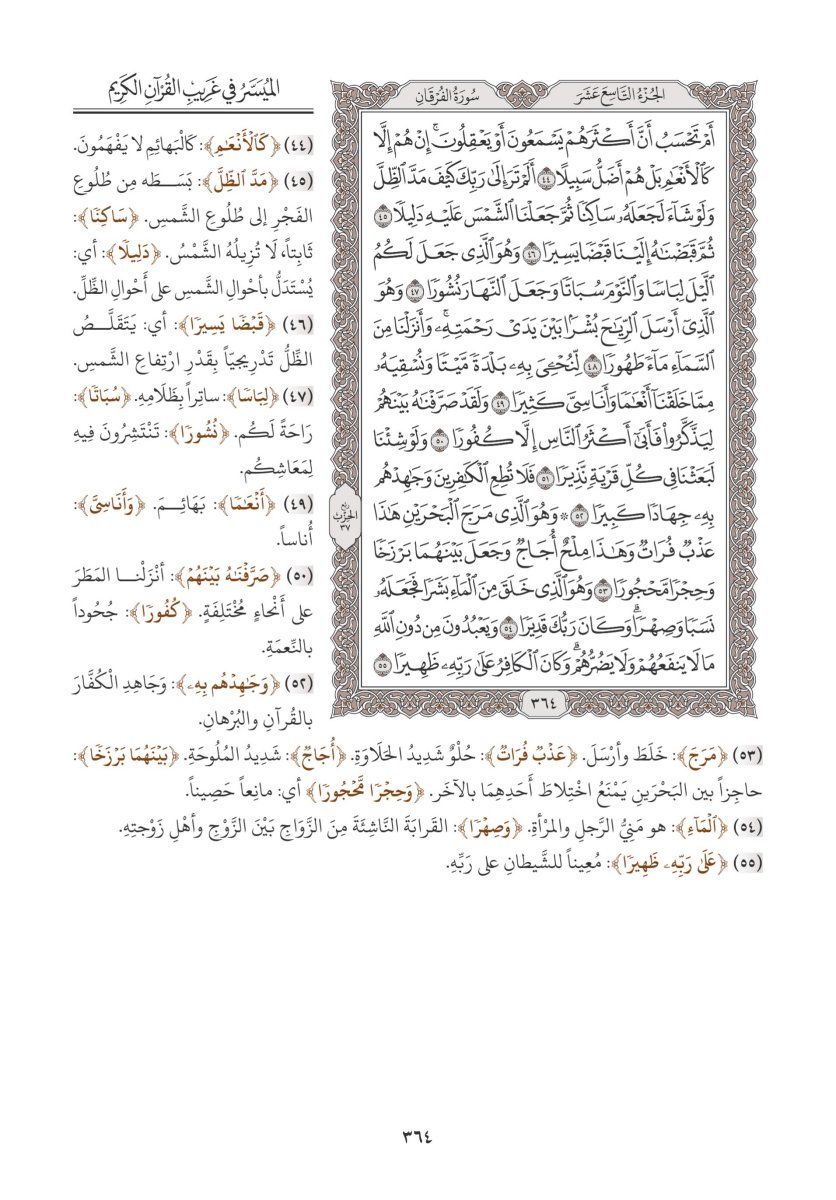 الميسر في غريب القرآن الكريم
الجزء التاسع عشر
سورة الفرقان
أَمْ تَحْسَبُ أَنَّ أَكْثَرَهُمْ يَسْمَعُونَ أَوْ يَعْقِلُونَ ۚ إِنْ هُمْ إِلَّا
كَالْأَنْعَٰمِ بَلْ هُمْ أَضَلُّ سَبِيلًا ٤٤ أَلَمْ تَرَ إِلَىٰ رَبِّكَ كَيْفَ مَدَّ الظِّلَّ
وَلَوْ شَاءَ لَجَعَلَهُۥ سَاكِنًا ثُمَّ جَعَلْنَا الشَّمْسَ عَلَيْهِ دَلِيلًا ٤٥
ثُمَّ قَبَضْنَٰهُ إِلَيْنَا قَبْضًا يَسِيرًا ٤٦ وَهُوَ الَّذِي جَعَلَ لَكُمُ
الَّيْلَ لِبَاسًا وَالنَّوْمَ سُبَاتًا وَجَعَلَ النَّهَارَ نُشُورًا ٤٧ وَهُوَ
الَّذِي أَرْسَلَ الرِّيَٰحَ بُشْرًا بَيْنَ يَدَيْ رَحْمَتِهِۦ ۚ وَأَنْزَلْنَا مِنَ
السَّمَاءِ مَاءً طَهُورًا ٤٨ لِّنُحْـِۧيَ بِهِۦ بَلْدَةً مَّيْتًا وَنُسْقِيَهُۥ
مِمَّا خَلَقْنَا أَنْعَٰمًا وَأَنَاسِيَّ كَثِيرًا ٤٩ وَلَقَدْ صَرَّفْنَٰهُ بَيْنَهُمْ
لِيَذَّكَّرُوا فَأَبَىٰ أَكْثَرُ النَّاسِ إِلَّا كُفُورًا ٥٠ وَلَوْ شِئْنَا
لَبَعَثْنَا فِي كُلِّ قَرْيَةٍ نَّذِيرًا ٥١ فَلَا تُطِعِ الْكَٰفِرِينَ وَجَٰهِدْهُم
بِهِۦ جِهَادًا كَبِيرًا ٥٢ ۞ وَهُوَ الَّذِي مَرَجَ الْبَحْرَيْنِ هَٰذَا
عَذْبٌ فُرَاتٌ وَهَٰذَا مِلْحٌ أُجَاجٌ وَجَعَلَ بَيْنَهُمَا بَرْزَخًا
وَحِجْرًا مَّحْجُورًا ٥٣ وَهُوَ الَّذِي خَلَقَ مِنَ الْمَاءِ بَشَرًا فَجَعَلَهُۥ
نَسَبًا وَصِهْرًا ۗ وَكَانَ رَبُّكَ قَدِيرًا ٥٤ وَيَعْبُدُونَ مِن دُونِ اللَّهِ
مَا لَا يَنفَعُهُمْ وَلَا يَضُرُّهُمْ ۗ وَكَانَ الْكَافِرُ عَلَىٰ رَبِّهِۦ ظَهِيرًا ٥٥
ربع
الحزب
٣٧
٣٦٤
(٤٤) ﴿كَالْأَنْعَٰمِ﴾: كَالْبَهائِمِ لا يَفْهَمُونَ.
(٤٥) ﴿مَدَّ الظِّلَّ﴾: بَسَطَه مِن طُلُوعِ
الفَجْرِ إلى طُلُوعِ الشَّمسِ. ﴿سَاكِنًا﴾:
ثابِتاً، لَا تُزِيلُهُ الشَّمْسُ. ﴿دَلِيلًا﴾: أي:
يُسْتَدَلُّ بأحْوالِ الشَّمسِ على أَحْوالِ الظِّلِّ.
(٤٦) ﴿قَبْضًا يَسِيرًا﴾: أي: يَتَقَلَّصُ
الظِّلُّ تَدْرِيجيّاً بِقَدْرِ ارْتِفاعِ الشَّمسِ.
(٤٧) ﴿لِبَاسًا﴾: ساتِراً بِظَلَامِهِ. ﴿سُبَاتًا﴾:
رَاحَةً لَكُم. ﴿نُشُورًا﴾: تَنْتَشِرُونَ فِيهِ
لِمَعَاشِكُم.
(٤٩) ﴿أَنْعَٰمًا﴾: بَهَائِمَ. ﴿وَأَنَاسِيَّ﴾:
أُناساً.
(٥٠) ﴿صَرَّفْنَٰهُ بَيْنَهُمْ﴾: أنْزَلْنا المَطَرَ
على أَنْحاءٍ مُخْتَلِفَةٍ. ﴿كُفُورًا﴾: جُحُوداً
بالنِّعمَةِ.
(٥٢) ﴿وَجَٰهِدْهُم بِهِۦ﴾: وَجَاهِدِ الكُفَّارَ
بالقُرآنِ والبُرْهانِ.
(٥٣) ﴿مَرَجَ﴾: خَلَطَ وأرْسَلَ. ﴿عَذْبٌ فُرَاتٌ﴾: حُلْوٌ شَدِيدُ الحَلَاوَةِ. ﴿أُجَاجٌ﴾: شَدِيدُ المُلُوحَةِ. ﴿بَيْنَهُمَا بَرْزَخًا﴾:
حاجِزاً بين البَحْرَينِ يَمْنَعُ اخْتِلاطَ أَحَدِهِمَا بالآخَرِ. ﴿وَحِجْرًا مَّحْجُورًا﴾ أي: مانِعاً حَصِيناً.
(٥٤) ﴿الْمَاءِ﴾: هو مَنِيُّ الرَّجلِ والمرْأةِ. ﴿وَصِهْرًا﴾: القَرابَةَ النَّاشِئَةَ مِنَ الزَّوَاجِ بَيْنَ الزَّوْجِ وأهْلِ زَوْجتِهِ.
(٥٥) ﴿عَلَىٰ رَبِّهِۦ ظَهِيرًا﴾: مُعِيناً للشَّيطانِ على رَبِّهِ.
٣٦٤